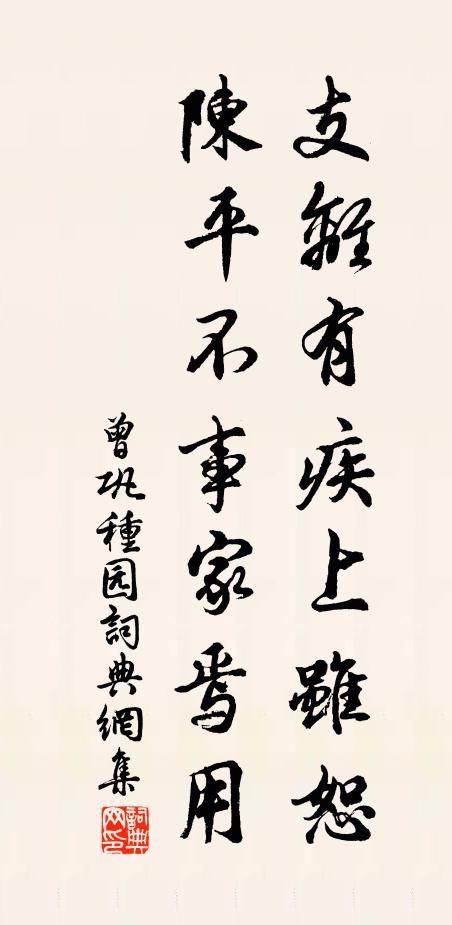 支離有疾上雖恕
陳平不事家焉用
曾巩種园詞典網集
詞典网印